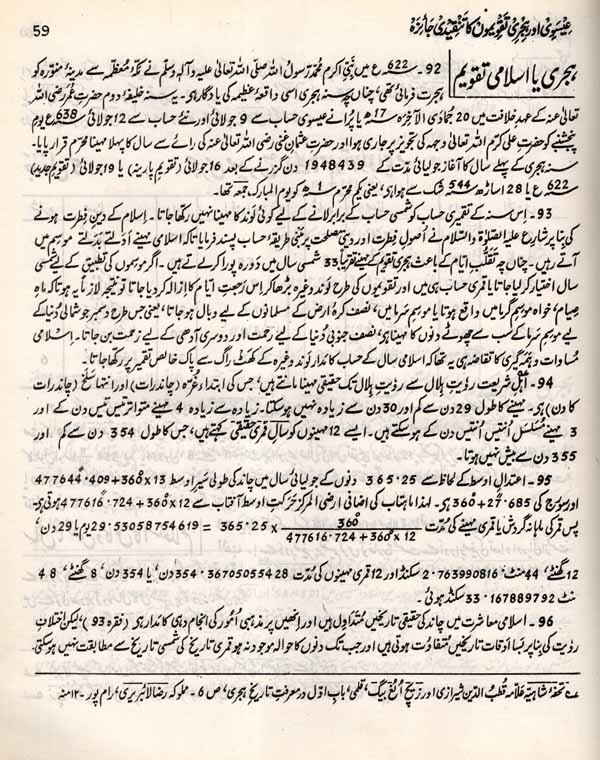 عیسوی اور ہجری تقویموں کا تنقیدی جائزہ
59
ہجری یا اسلامی تقویم
92۔ سنہ 622 ع میں نبی اکرم محمد رسول اللہ صلی اللہ تعالیٰ علیہ وآلہ وسلم نے مکۂ معظمہ سے مدینۂ منورہ کو
ہجرت فرمائی تھی، چناں چہ سنہ ہجری اسی واقعۂ عظیمہ کی یادگار ہے۔ یہ سنہ خلیفۂ دوم حضرت عمر رضی اللہ
تعالیٰ عنہ کے عہد خلافت میں 20 جمادی الآخرہ 17ھ یا پرانے عیسوی حساب سے 9 جولائی اور نئے حساب سے 12 جولائی 638ع یوم
پنجشنبے کو حضرت علی کرم اللہ تعالیٰ وجہہ کی تجویز پر جاری ہوا اور حضرت عثمان غنی رضی اللہ تعالیٰ عنہ کی رائے سے سال کا پہلا مہینا محرم قرار پایا۔
سنہ ہجری کے پہلے سال کا آغاز جولیائی مدت کے 1948439 دن گزرنے کے بعد 16 جولائی (تقویم پارینہ) یا 19 جولائی (تقویم جدید)
سنہ 622ع یا 28 اساڑھ 544 شک سے ہوا ہے، یعنی یکم محرم 1ھ کو یوم المبارک جمعہ تھا۔
93۔ اس سنہ کے تقویمی حساب کو شمسی حساب کے برابر لانے کے لیے کوئی لوند کا مہینا نہیں رکھا جاتا۔ اسلام کے دین فطرت ہونے
کی بنا پر شارع علیہ الصلوٰۃ والسلام نے اصول فطرت اور دینی مصلحت پر مبنی طریقۂ حساب پسند فرمایا تاکہ اسلامی مہینے ادلتے بدلتے موسم میں
آتے رہیں۔ چناں چہ تقلب ایام کے باعث ہجری تقویم کے مہینے تقریباً 33 شمسی سال میں دورہ پورا کر لیتے ہیں۔ اگر موسموں کی تطبیق کے لیے شمسی
سال اختیار کر لیا جاتا یا قمری حساب ہی میں اور تقویموں کی طرح لوند وغیرہ بڑھا کر اس رجعت ایام کا ازالہ کر دیا جاتا تو نتیجہ لازماً یہ ہوتا کہ ماہ
صیام، خواہ موسم گرما میں واقع ہوتا یا موسم سرما میں، نصف کرۂ ارض کے مسلمانوں کے لیے وبال ہو جاتا، یعنی جس طرح دسمبر جو شمالی دنیا کے
لیے موسم سرما کے سب سے چھوٹے دنوں کا مہینا ہے، نصف جنوبی دنیا کے لیے رحمت اور دوسری آدھی کے لیے زحمت بن جاتا۔ اسلامی
مساوات و ہمہ گیری کا تقاضہ ہی یہ تھا کہ اسلامی سال کے حساب کا مدار لوند وغیرہ کے کھٹ راگ سے پاک خالص تقمیر پر رکھا جاتا۔
94۔ اہل شریعت رویت ہلال سے رویت ہلال تک حقیقی مہینا مانتے ہیں، جس کی ابتدا غرہ (چاند رات) اور انتہا سلخ (چاند رات
کا دن) ہے۔ مہینے کا طول 29 دن سے کم اور 30 دن سے زیادہ نہیں ہو سکتا۔ زیادہ سے زیادہ 4 مہینے متواتر تیس تیس دن کے اور
3 مہینے مسلسل انتیس انتیس دن کے ہو سکتے ہیں۔ ایسے 12 مہینوں کو سال قمری حقیقی کہتے ہیں، جس کا طول 354 دن سے کم اور
355 دن سے بیش نہیں ہوتا۔
95۔ اعتدال اوسط کے لحاظ سے 365.25 دنوں کے جولیائی سال میں چاند کی طولی سیر اوسط 477644.409+360°x13
اور سورج کی 27.685+360° ہے۔ لہٰذا ماہتاب کی اضافی ارضی المرکز حرکت اوسط آفتاب سے 477616.724+360°x12 ہوتی ہے۔
پس قمر کی ماہانہ گردش یا قمری مہینے کی مدت 360° / 477616.724+360°x12 x 365.25 = 29.53058754619 یوم یا 29 دن،
12 گھنٹے، 44 منٹ، 2.763990816 سکنڈ اور 12 قمری مہینوں کی مدت 354.36705055428 دن، یا 354 دن، 8 گھنٹے، 48
منٹ 33.167889792 سکنڈ ہوئی۔
96۔ اسلامی معاشرت میں چاند کی حقیقی تاریخیں متداول ہیں اور انھیں پر مذہبی امور کی انجام دہی کا مدار ہے (فقرہ 93)، لیکن اختلاف
رویت کی بنا پر بسا اوقات تاریخیں متفاوت ہوتی ہیں اور جب تک دنوں کا حوالہ موجود نہ ہو قمری تاریخ کی شمسی تاریخ سے مطابقت نہیں ہو سکتی
تحفۂ شاہیہ علامہ قطب الدین شیرازی اور زیچ الغ بیگ، قلمی، باب اول در معرفت تاریخ ہجری، ص 6۔ مملوکہ رضا لائبریری، رام پور۔ ۱۲ منہ